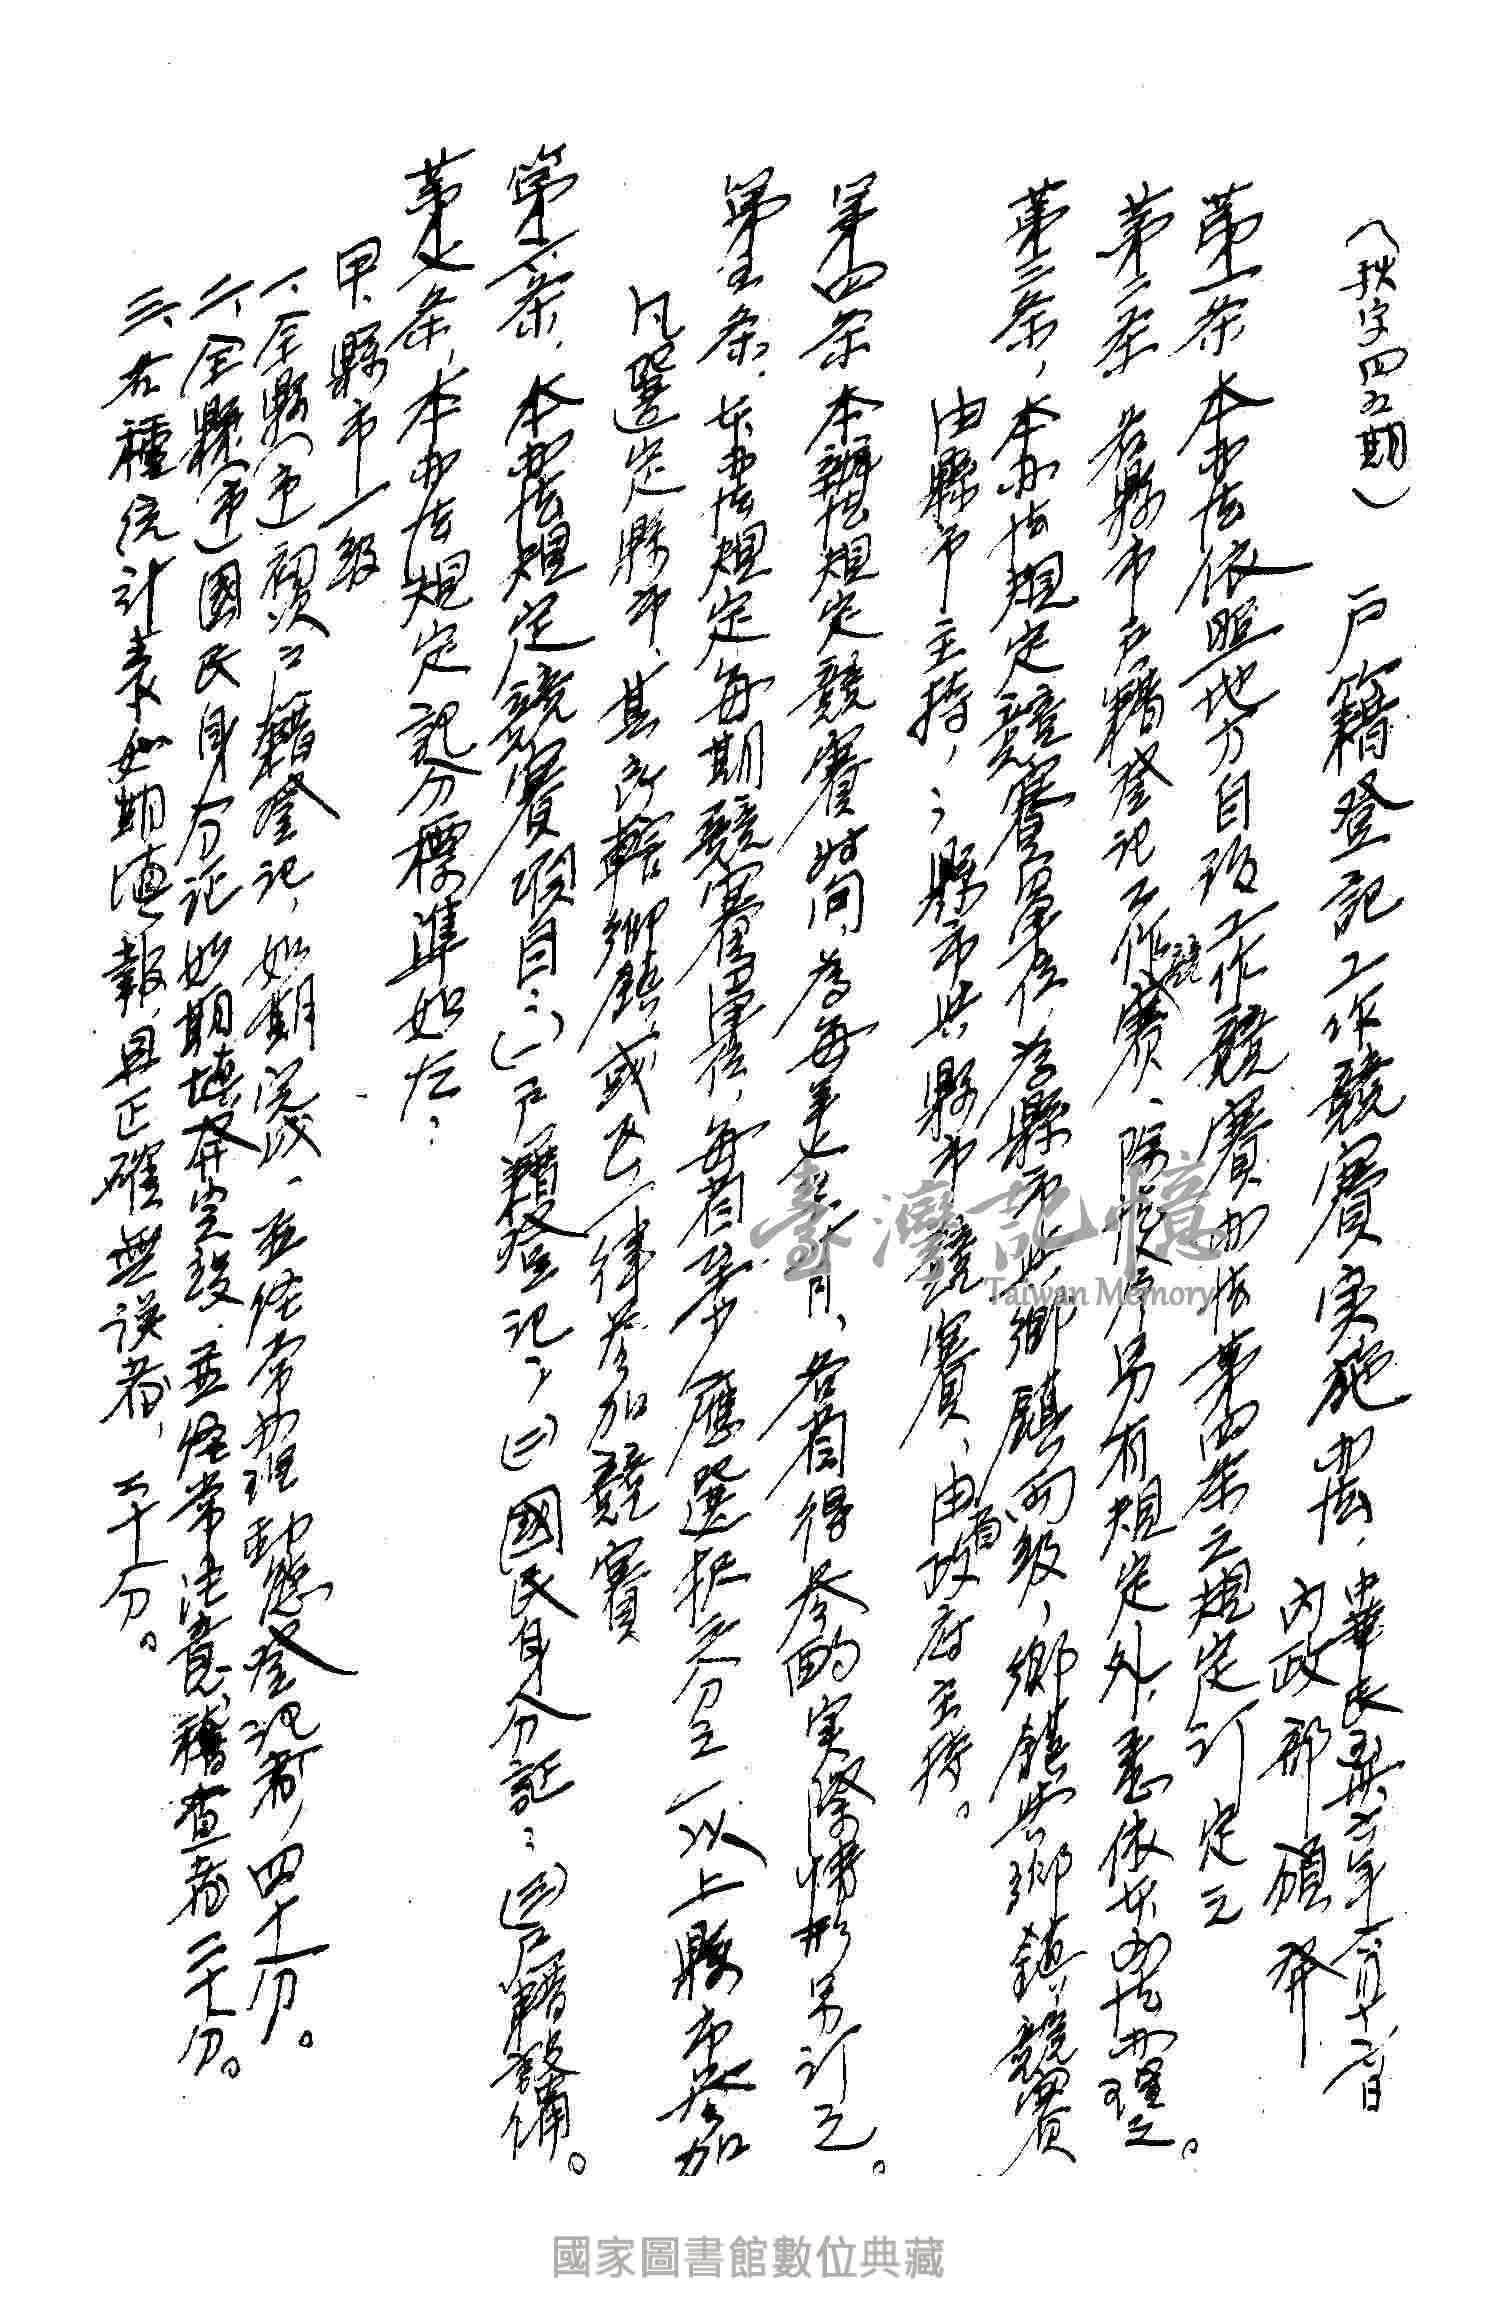 （秋字四五期） 戶籍登記工作競賽实施办法，中華民國三十年六月十六日
內政部頒發
第一条 本办法依照地方自治工作競賽办法第四条之規定訂定之
第二条 各縣市戶籍登記工作競賽、除程序另有規定外，悉依本办法办理之。
第三条，本办法規定競賽單位，為縣市与鄉鎮兩級，鄉鎮与鄉鎮競賽
由縣市主持，；縣市与縣市競賽、由省政府主持。
第四条 本辦法規定競賽時间，為每年七月，各省得參酌实際情形另訂之。
第五条．本办法規定每期競賽單位，每省至少應選択三分之一以上縣市參加
凡選定縣市、其所轄鄉鎮或區一律參加競賽
第六条．本办法規定競賽項目：(一)戶籍登記；(二)國民身分証；(三)戶籍設備。
第七条，本办法規定記分標準如左：
甲、縣市一級
一、全縣(市)初次戶籍登記，如期完成、並經常办理動態登記者，四十分。
二、全縣(市)國民身分证如期填發完竣．並經常注意稽查者二十分。
三、各種统计表如期填報，且正確無误者，二十分。
臺灣記憶
Taiwan Memory
國家圖書館數位典藏